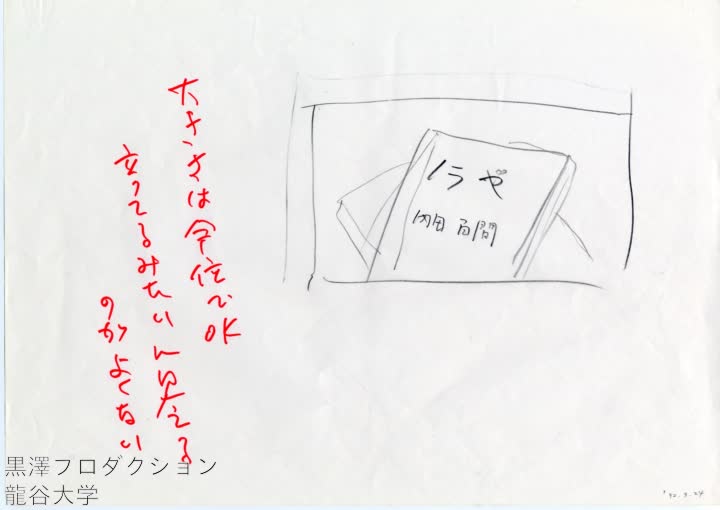 大きさは今位でOK
立ってるみたいに見える
のがよくない
ノラや
内田 百間
黒澤フロダクション
龍谷大学
'92.3.24